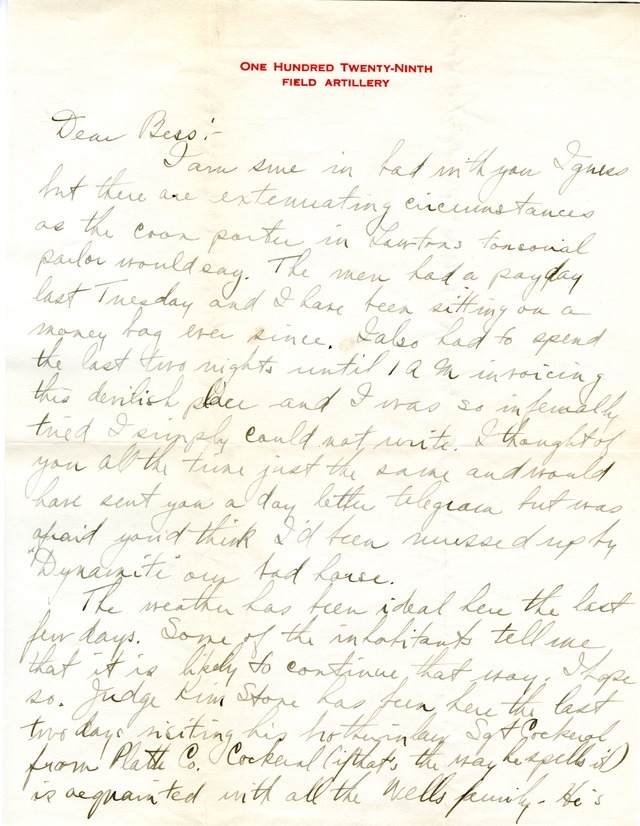 ONE HUNDRED TWENTY-NINTH
FIELD ARTILLERY
Dear Bess:-
I am sure in bad with you I guess
but there are extenuating circumstances
as the coon porter in Lawtons tonsorial
parlor would say. The men had a payday
last Tuesday and I have been sitting on a
money bag ever since. I also had to spend
the last two nights until 1 A M invoicing
this devilish place and I was so infernally
tried I simply could not write. I thought of
you all the time just the same and would
have sent you a day letter telegram but was
afraid you'd think I'd been mussed up by
"Dynamite" our bad horse.
The weather has been ideal here the last
few days. Some of the inhabitants tell me
that it is likely to continue that way. I hope
so. Judge Kim Stone has been here the last
two days visiting his brotherinlaw Sgt Cockerel
from Platte Co. Cockeral (if that's the way he spells it)
is acquainted with all the Wells family. He's